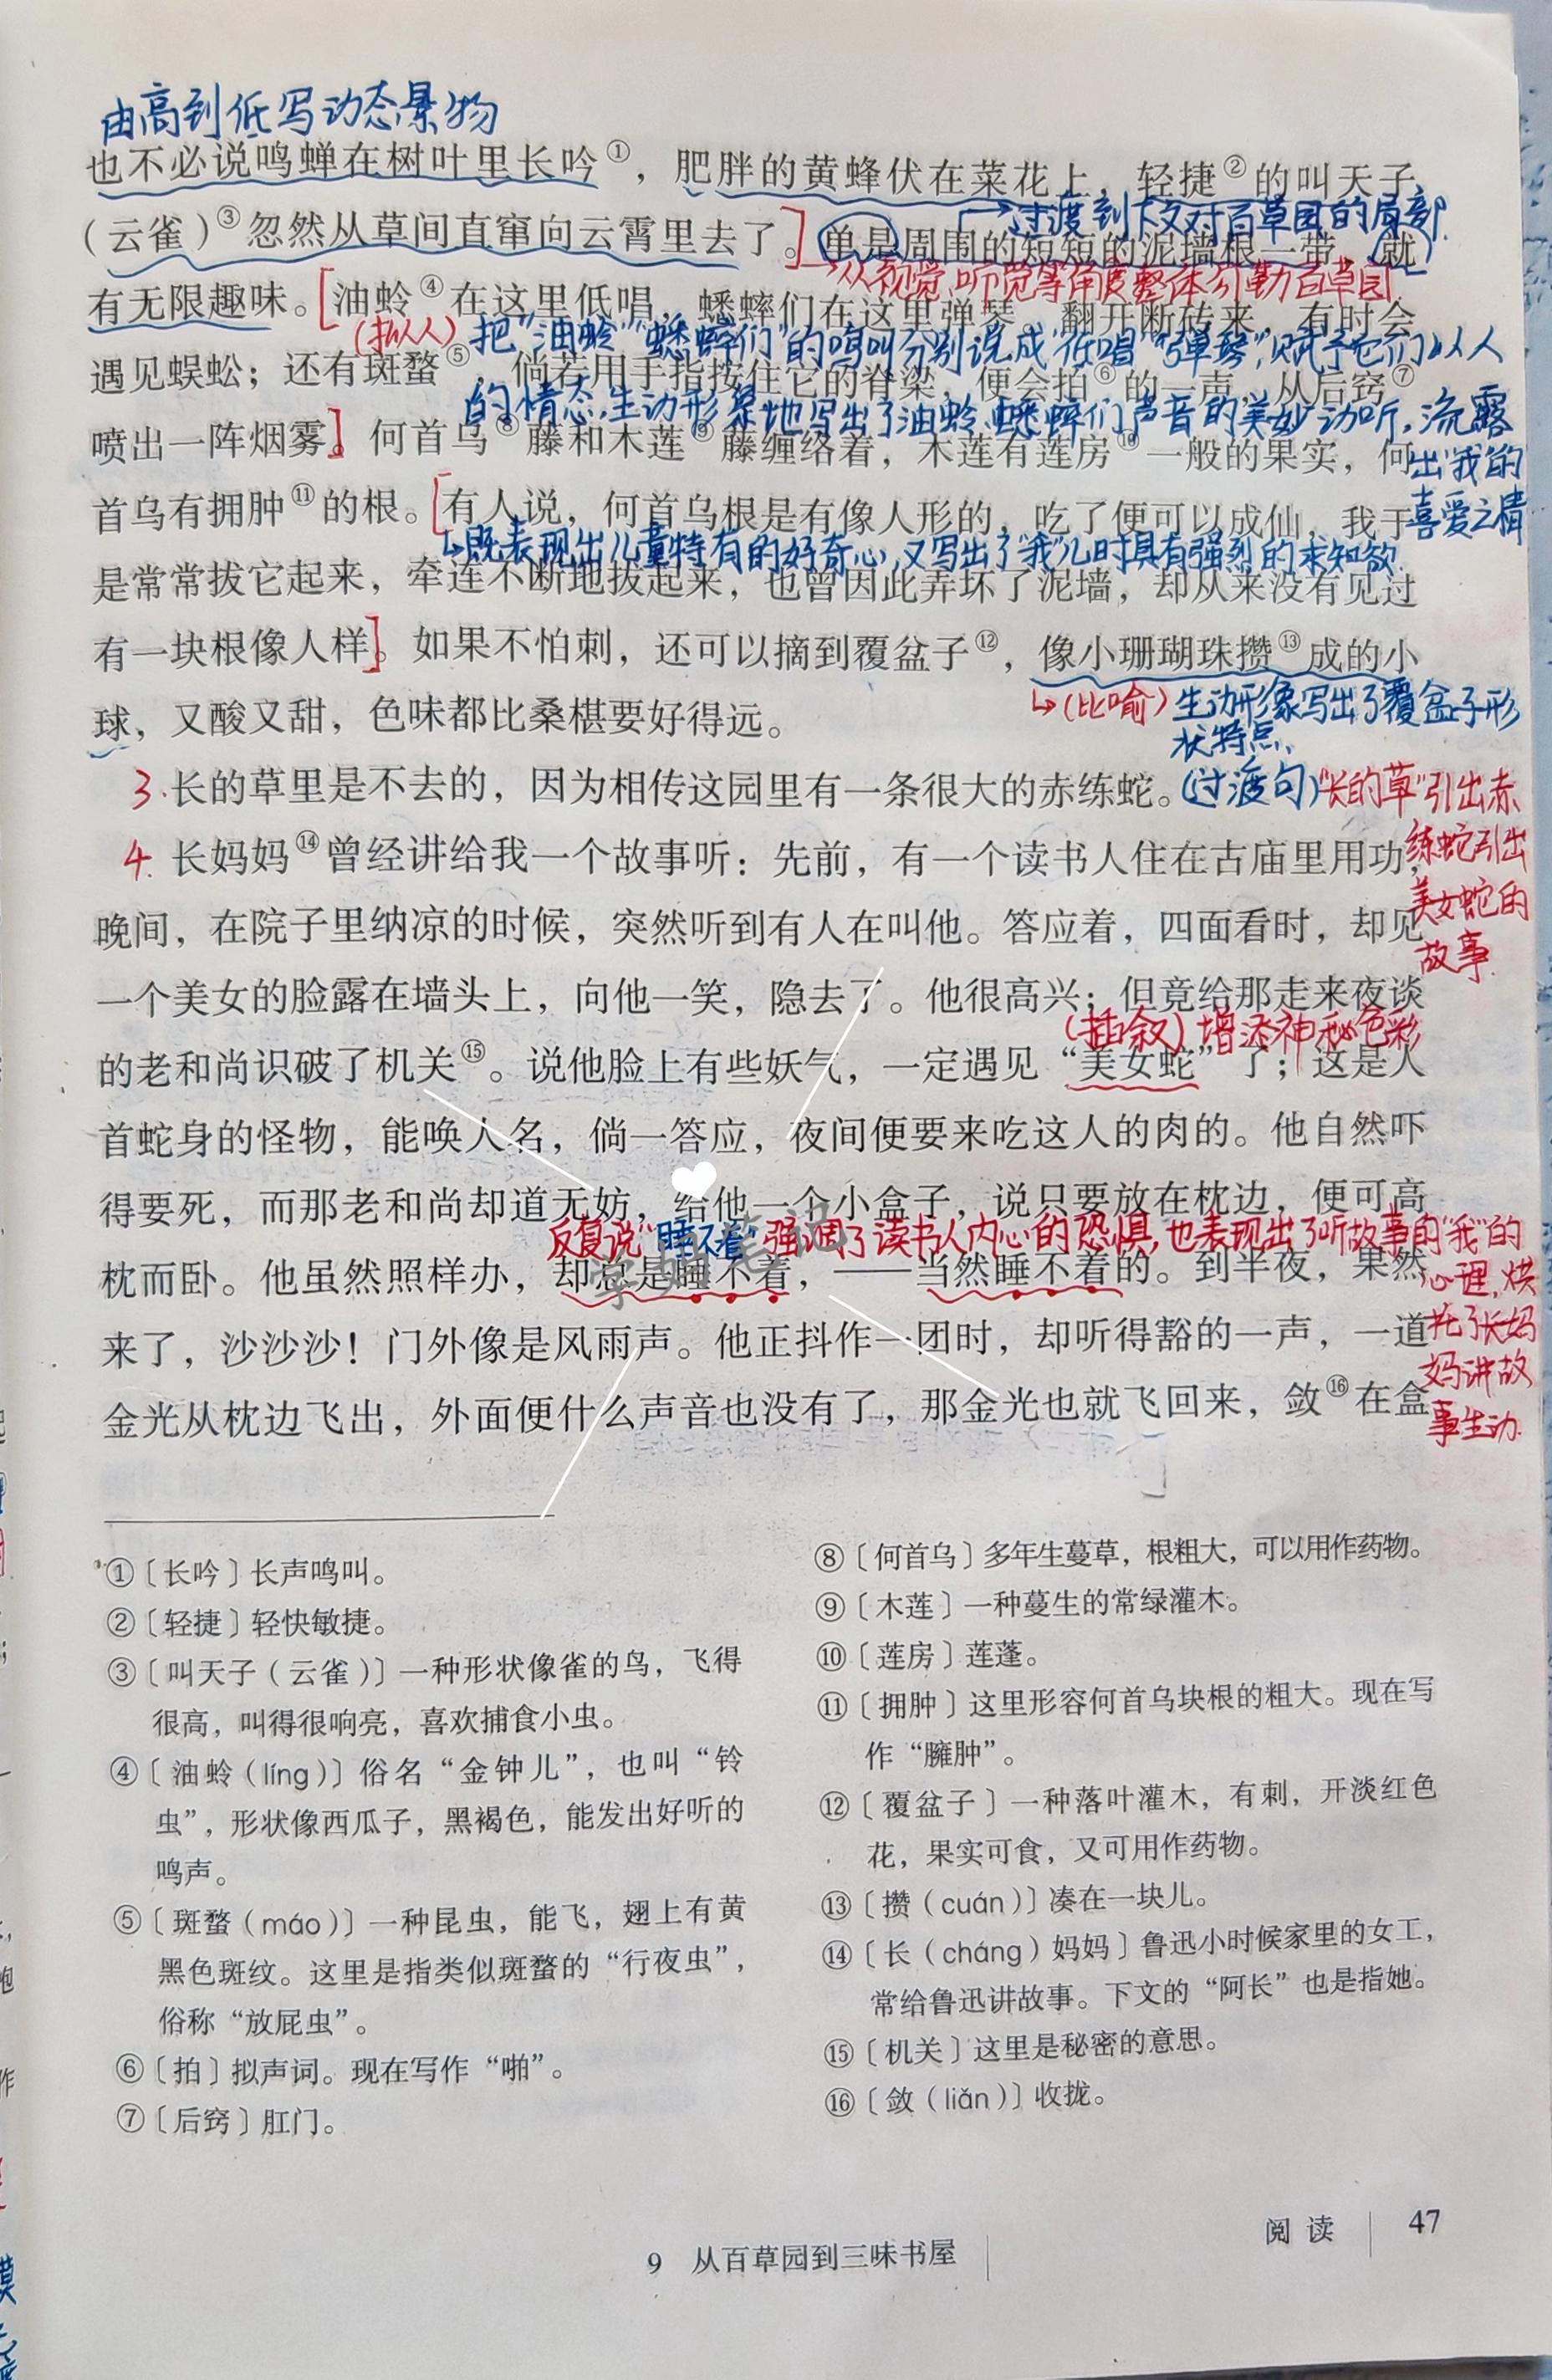 由高到低写动态景物
也不必说鸣蝉在树叶里长吟①，肥胖的黄蜂伏在菜花上，轻捷②的叫天子
→过渡到下文对百草园的局部
（云雀）③忽然从草间直窜向云霄里去了。]单是周围的短短的泥墙根一带，就
→从视觉、听觉等角度整体勾勒百草园
有无限趣味。[油蛉④在这里低唱，蟋蟀们在这里弹琴。翻开断砖来，有时会
(拟人)把“油蛉”“蟋蟀们”的鸣叫分别说成“低唱”“弹琴”，赋予它们以人
遇见蜈蚣；还有斑蝥⑤，倘若用手指按住它的脊梁，便会拍⑥的一声，从后窍⑦
的情态，生动形象地写出了油蛉、蟋蟀们声音的美妙动听，流露
出“我”的
喜爱之情
喷出一阵烟雾]。何首乌⑧藤和木莲⑨藤缠络着，木莲有莲房⑩一般的果实，何
首乌有拥肿⑪的根。[有人说，何首乌根是有像人形的，吃了便可以成仙，我于
↳既表现出儿童特有的好奇心，又写出了“我”儿时具有强烈的求知欲.
是常常拔它起来，牵连不断地拔起来，也曾因此弄坏了泥墙，却从来没有见过
有一块根像人样]。如果不怕刺，还可以摘到覆盆子⑫，像小珊瑚珠攒⑬成的小
↳(比喻)生动形象写出了覆盆子形
状特点、
球，又酸又甜，色味都比桑椹要好得远。
3.长的草里是不去的，因为相传这园里有一条很大的赤练蛇。(过渡句)“长的草”引出赤
练蛇引出
美女蛇的
故事.
4.长妈妈⑭曾经讲给我一个故事听：先前，有一个读书人住在古庙里用功，
晚间，在院子里纳凉的时候，突然听到有人在叫他。答应着，四面看时，却见
一个美女的脸露在墙头上，向他一笑，隐去了。他很高兴；但竟给那走来夜谈
(插叙)增添神秘色彩
的老和尚识破了机关⑮。说他脸上有些妖气，一定遇见“美女蛇”了；这是人
首蛇身的怪物，能唤人名，倘一答应，夜间便要来吃这人的肉的。他自然吓
得要死，而那老和尚却道无妨，给他一个小盒子，说只要放在枕边，便可高
反复说“睡不着”强调了读书人内心的恐惧，也表现出了听故事的“我”的
心理，烘
托了长妈
妈讲故
事生动.
枕而卧。他虽然照样办，却总是睡不着，——当然睡不着的。到半夜，果然
来了，沙沙沙！门外像是风雨声。他正抖作一团时，却听得豁的一声，一道
金光从枕边飞出，外面便什么声音也没有了，那金光也就飞回来，敛⑯在盒
①〔长吟〕长声鸣叫。
②〔轻捷〕轻快敏捷。
③〔叫天子（云雀）〕一种形状像雀的鸟，飞得
很高，叫得很响亮，喜欢捕食小虫。
④〔油蛉（líng）〕俗名“金钟儿”，也叫“铃
虫”，形状像西瓜子，黑褐色，能发出好听的
鸣声。
⑤〔斑蝥（máo）〕一种昆虫，能飞，翅上有黄
黑色斑纹。这里是指类似斑蝥的“行夜虫”，
俗称“放屁虫”。
⑥〔拍〕拟声词。现在写作“啪”。
⑦〔后窍〕肛门。
⑧〔何首乌〕多年生蔓草，根粗大，可以用作药物。
⑨〔木莲〕一种蔓生的常绿灌木。
⑩〔莲房〕莲蓬。
⑪〔拥肿〕这里形容何首乌块根的粗大。现在写
作“臃肿”。
⑫〔覆盆子〕一种落叶灌木，有刺，开淡红色
花，果实可食，又可用作药物。
⑬〔攒（cuán）〕凑在一块儿。
⑭〔长（cháng）妈妈〕鲁迅小时候家里的女工，
常给鲁迅讲故事。下文的“阿长”也是指她。
⑮〔机关〕这里是秘密的意思。
⑯〔敛（liǎn）〕收拢。
9 从百草园到三味书屋
阅读 47